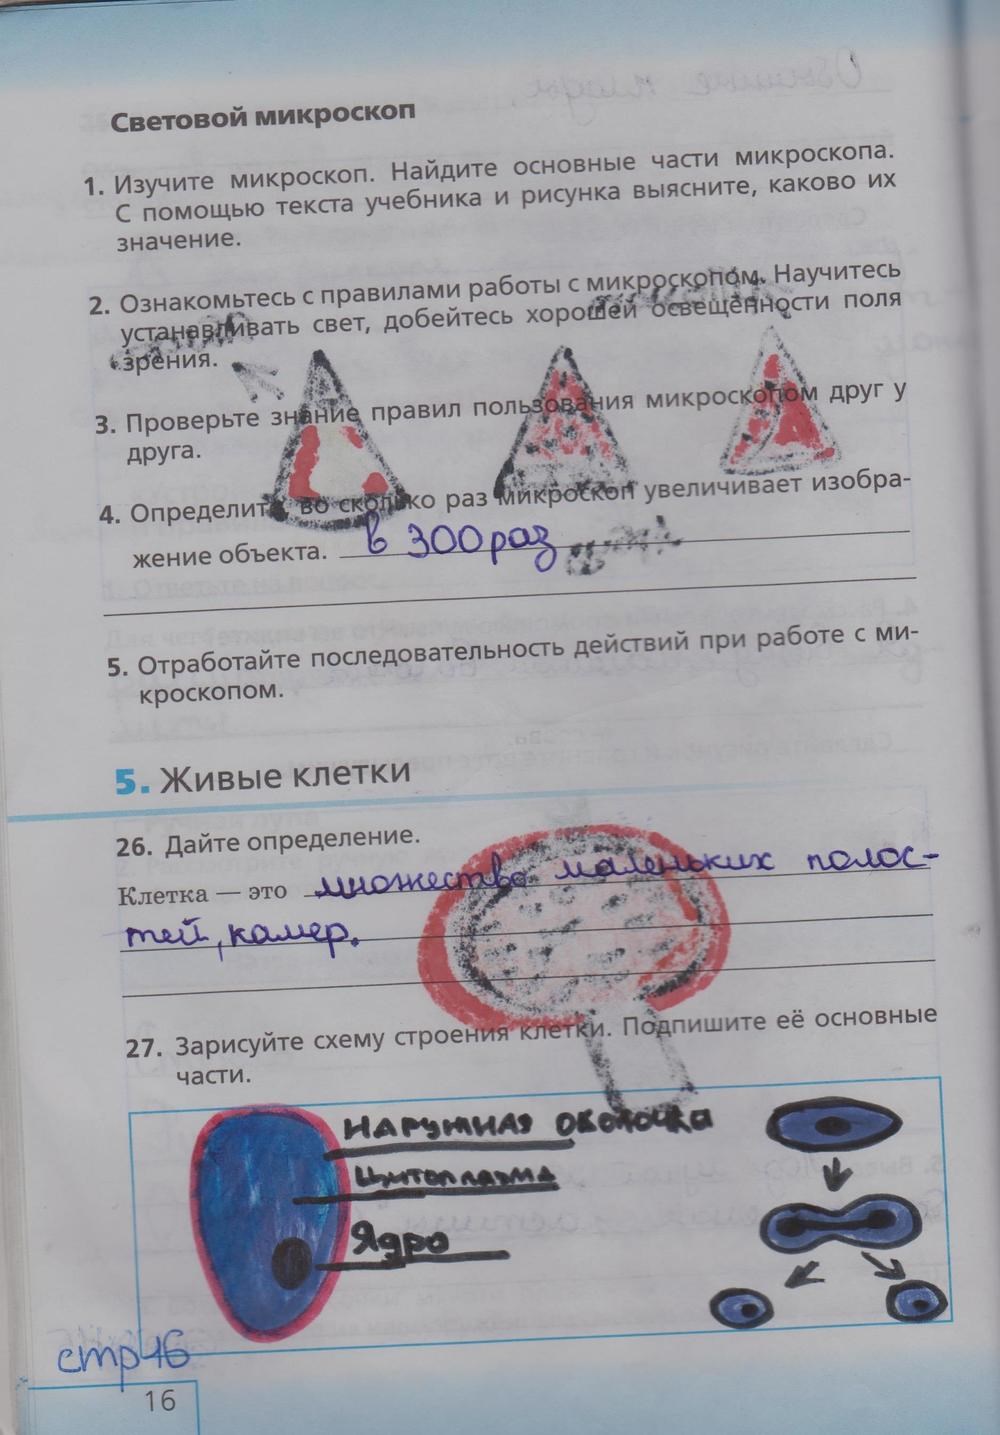 Световой микроскоп
1. Изучите микроскоп. Найдите основные части микроскопа.
С помощью текста учебника и рисунка выясните, каково их
значение.
2. Ознакомьтесь с правилами работы с микроскопом. Научитесь
устанавливать свет, добейтесь хорошей освещённости поля
зрения.
3. Проверьте знание правил пользования микроскопом друг у
друга.
4. Определите, во сколько раз микроскоп увеличивает изобра-
жение объекта. в 300 раз
5. Отработайте последовательность действий при работе с ми-
кроскопом.
5. Живые клетки
26. Дайте определение.
Клетка — это множество маленьких полос-
тей, камер.
27. Зарисуйте схему строения клетки. Подпишите её основные
части.
Наружная оболочка
Цитоплазма
Ядро
стр 16
16